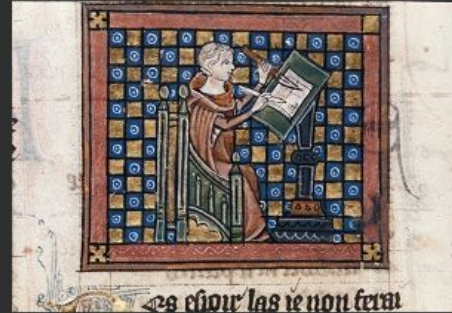 es espoir las ie non ferai